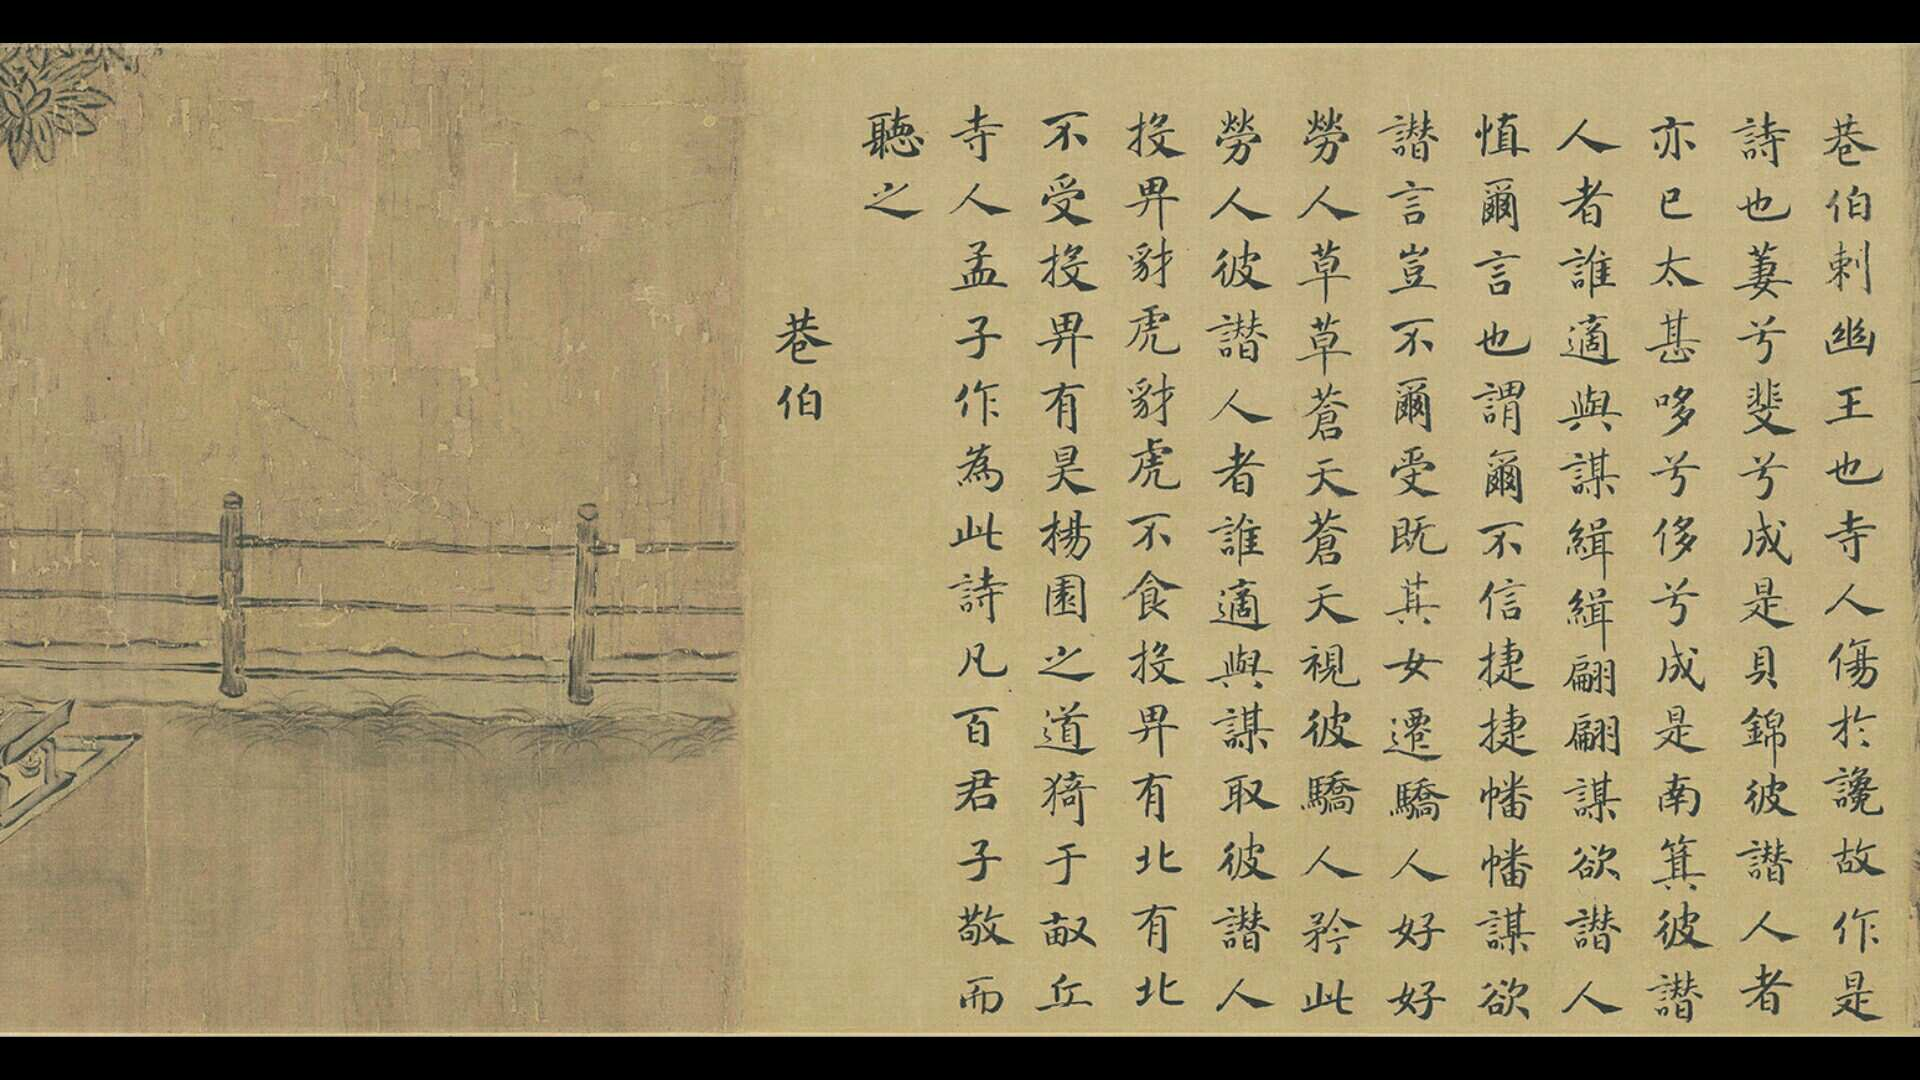 巷伯刺幽王也寺人傷於讒故作是
詩也萋兮斐兮成是貝錦彼譖人者
亦已太甚哆兮侈兮成是南箕彼譖
人者誰適與謀緝緝翩翩謀欲譖人
慎爾言也謂爾不信捷捷幡幡謀欲
譖言豈不爾受既其女遷驕人好好
勞人草草蒼天蒼天視彼驕人矜此
勞人彼譖人者誰適與謀取彼譖人
投畀豺虎豺虎不食投畀有北有北
不受投畀有昊楊園之道猗于畝丘
寺人孟子作為此詩凡百君子敬而
聽之
巷伯